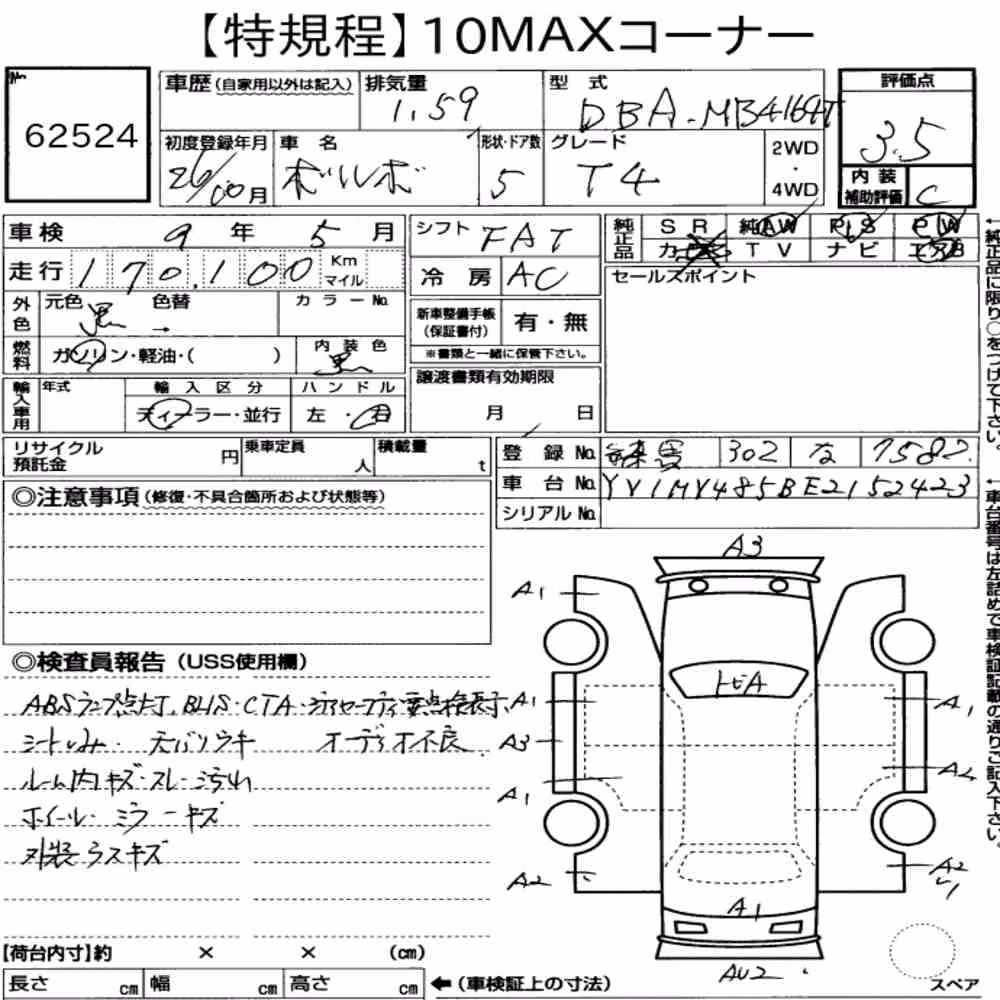 【特規程】10MAXコーナー
No.
62524
車歴 (自家用以外は記入)
排気量
1.59
型式
DBA-MB4164T
評価点
3.5
初度登録年月
26/00月
車名
ボルボ
形状・ドア数
5
グレード
T4
2WD
・
4WD
内装
補助評価
C
車検 9年 5月
走行 170,100 Km
マイル
外色
元色 黒
色替 →
カラーNo.
燃料
ガソリン・軽油・( )
内装色
黒
輸入車用
年式
輸入区分
ディーラー・並行
ハンドル
左・右
シフト FAT
冷房 AC
新車整備手帳
(保証書付)
有・無
※書類と一緒に保管下さい。
譲渡書類有効期限
月 日
純正品
SR 純AW PS PW
TV ナビ
セールスポイント
←純正品に限り○をつけて下さい。
リサイクル
預託金
円
乗車定員
人
積載量
t
登録No. 練馬 302 な 7582
車台No. YV1MV485BE2152423
シリアルNo.
←車台番号は左詰めで車検証記載の通りご記入下さい。
◎注意事項 (修復・不具合箇所および状態等)
◎検査員報告 (USS使用欄)
ABSランプ点灯、BLIS・CTA・
シートしみ・天バリウキ オーディオ不良
ルーム内キズ・スレ・汚れ
ホイール・ミラーキズ
外装ラスキズ
A3
A1
トビA
A1
A1
A3
A2
A1
A2
A2
A1
AU2
スペア
【荷台内寸】約 × × (cm)
長さ cm 幅 cm 高さ cm ←(車検証上の寸法)